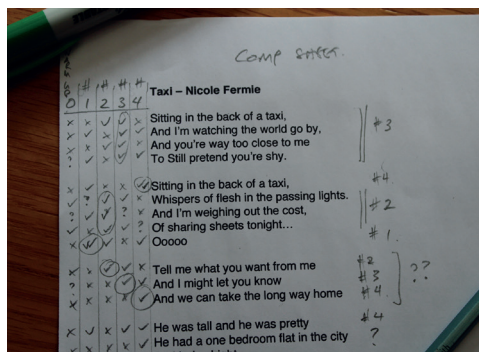 COMP SHEET.
# # # #
0 1 2 3 4 Taxi – Nicole Fermie
x x ✓ ✓ x Sitting in the back of a taxi,
And I'm watching the world go by,
And you're way too close to me #3
To Still pretend you're shy.
#4.
x ✓ x x ✓ Sitting in the back of a taxi,
Whispers of flesh in the passing lights.
And I'm weighing out the cost, #2
Of sharing sheets tonight...
Ooooo #1.
Tell me what you want from me #2
And I might let you know #3 ??
And we can take the long way home #4.
He was tall and he was pretty #4
He had a one bedroom flat in the city ?